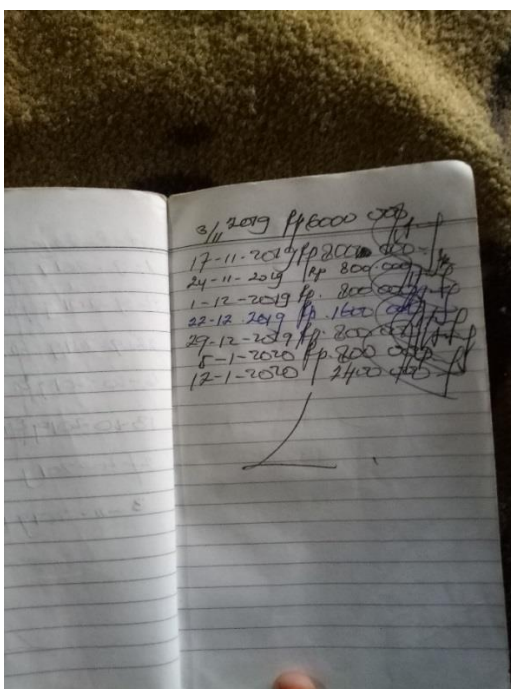 3/11 2019 Rp 6000 000
17-11-2019 Rp 800 000
24-11-2019 Rp 800.000
1-12-2019 Rp. 800 000
22-12-2019 Rp. 1600 000
29-12-2019 Rp. 800 000
5-1-2020 Rp. 800 000
12-1-2020 2400 000